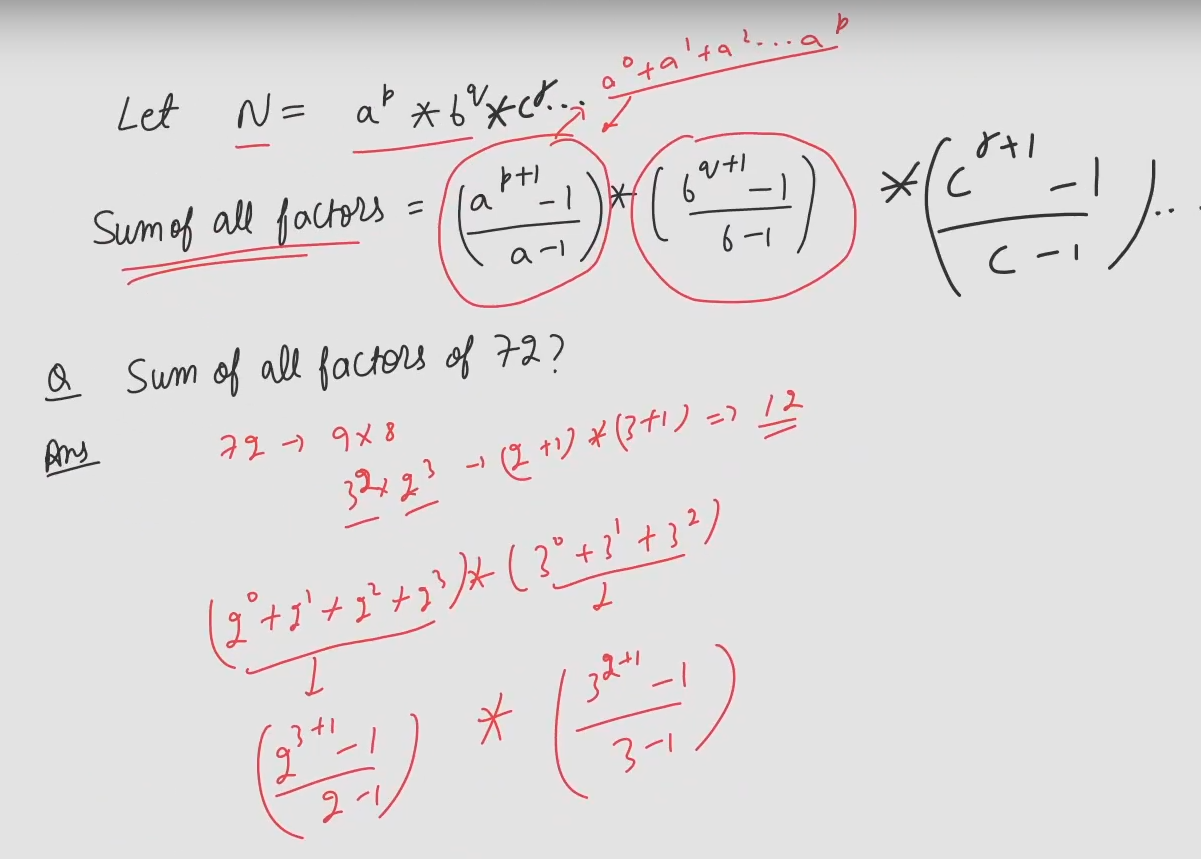 a⁰+a¹+a²...a^p
Let N = a^p * b^q * c^r...
Sum of all factors = (a^(p+1) - 1 / a-1) * (b^(q+1) - 1 / b-1) * (c^(r+1) - 1 / c-1)...
Q Sum of all factors of 72?
Ans 72 → 9 x 8
3² x 2³ → (2+1) * (3+1) => 12
(2⁰+2¹+2²+2³) * (3⁰+3¹+3²)
1 2
(2^(3+1) - 1 / 2-1) * (3^(2+1) - 1 / 3-1)